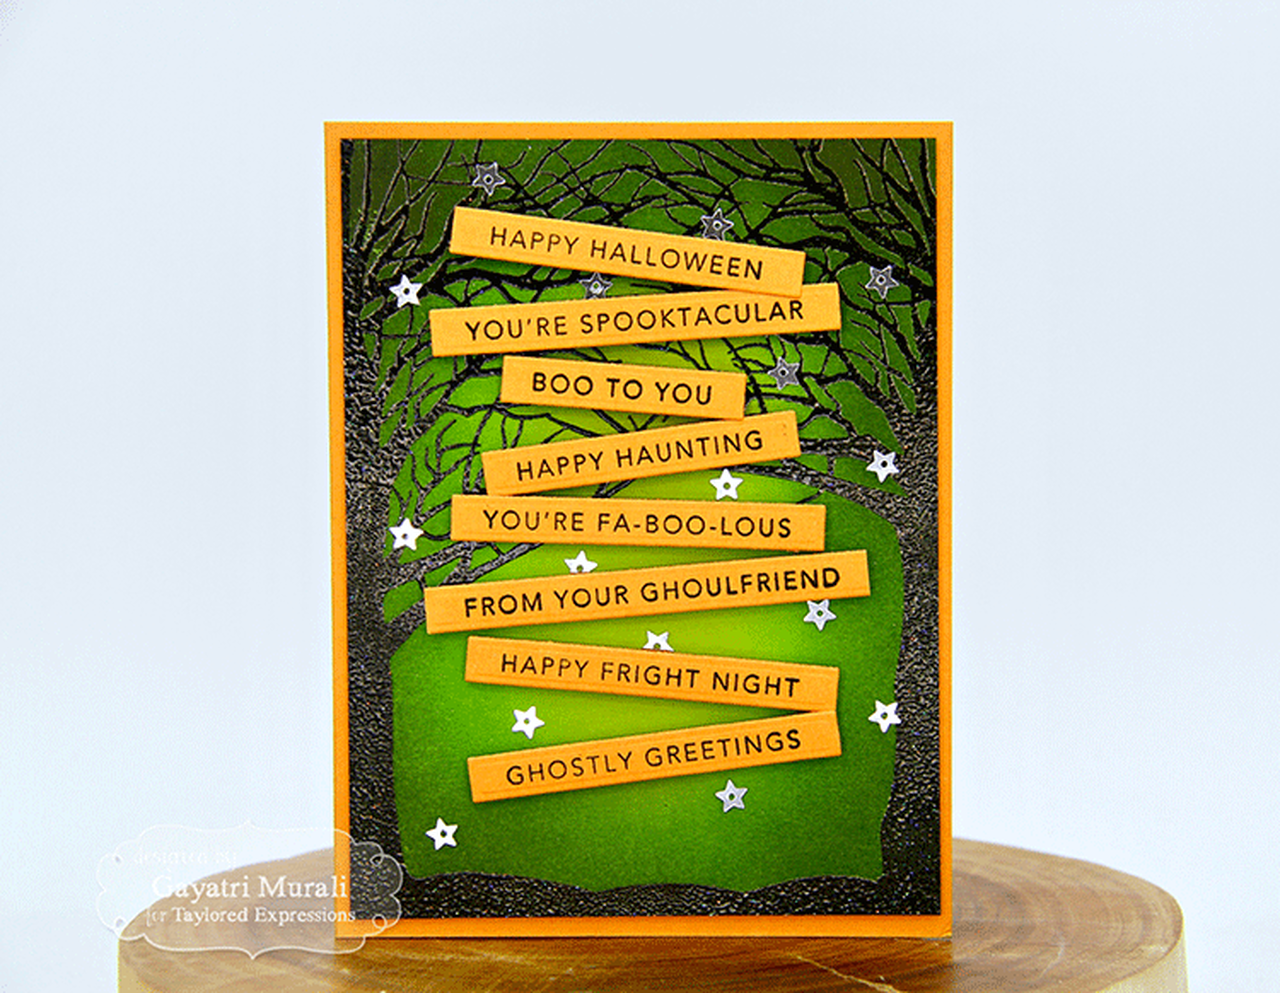 HAPPY HALLOWEEN
YOU'RE SPOOKTACULAR
BOO TO YOU
HAPPY HAUNTING
YOU'RE FA-BOO-LOUS
FROM YOUR GHOULFRIEND
HAPPY FRIGHT NIGHT
GHOSTLY GREETINGS
designed by
Gayatri Murali
for Taylored Expressions